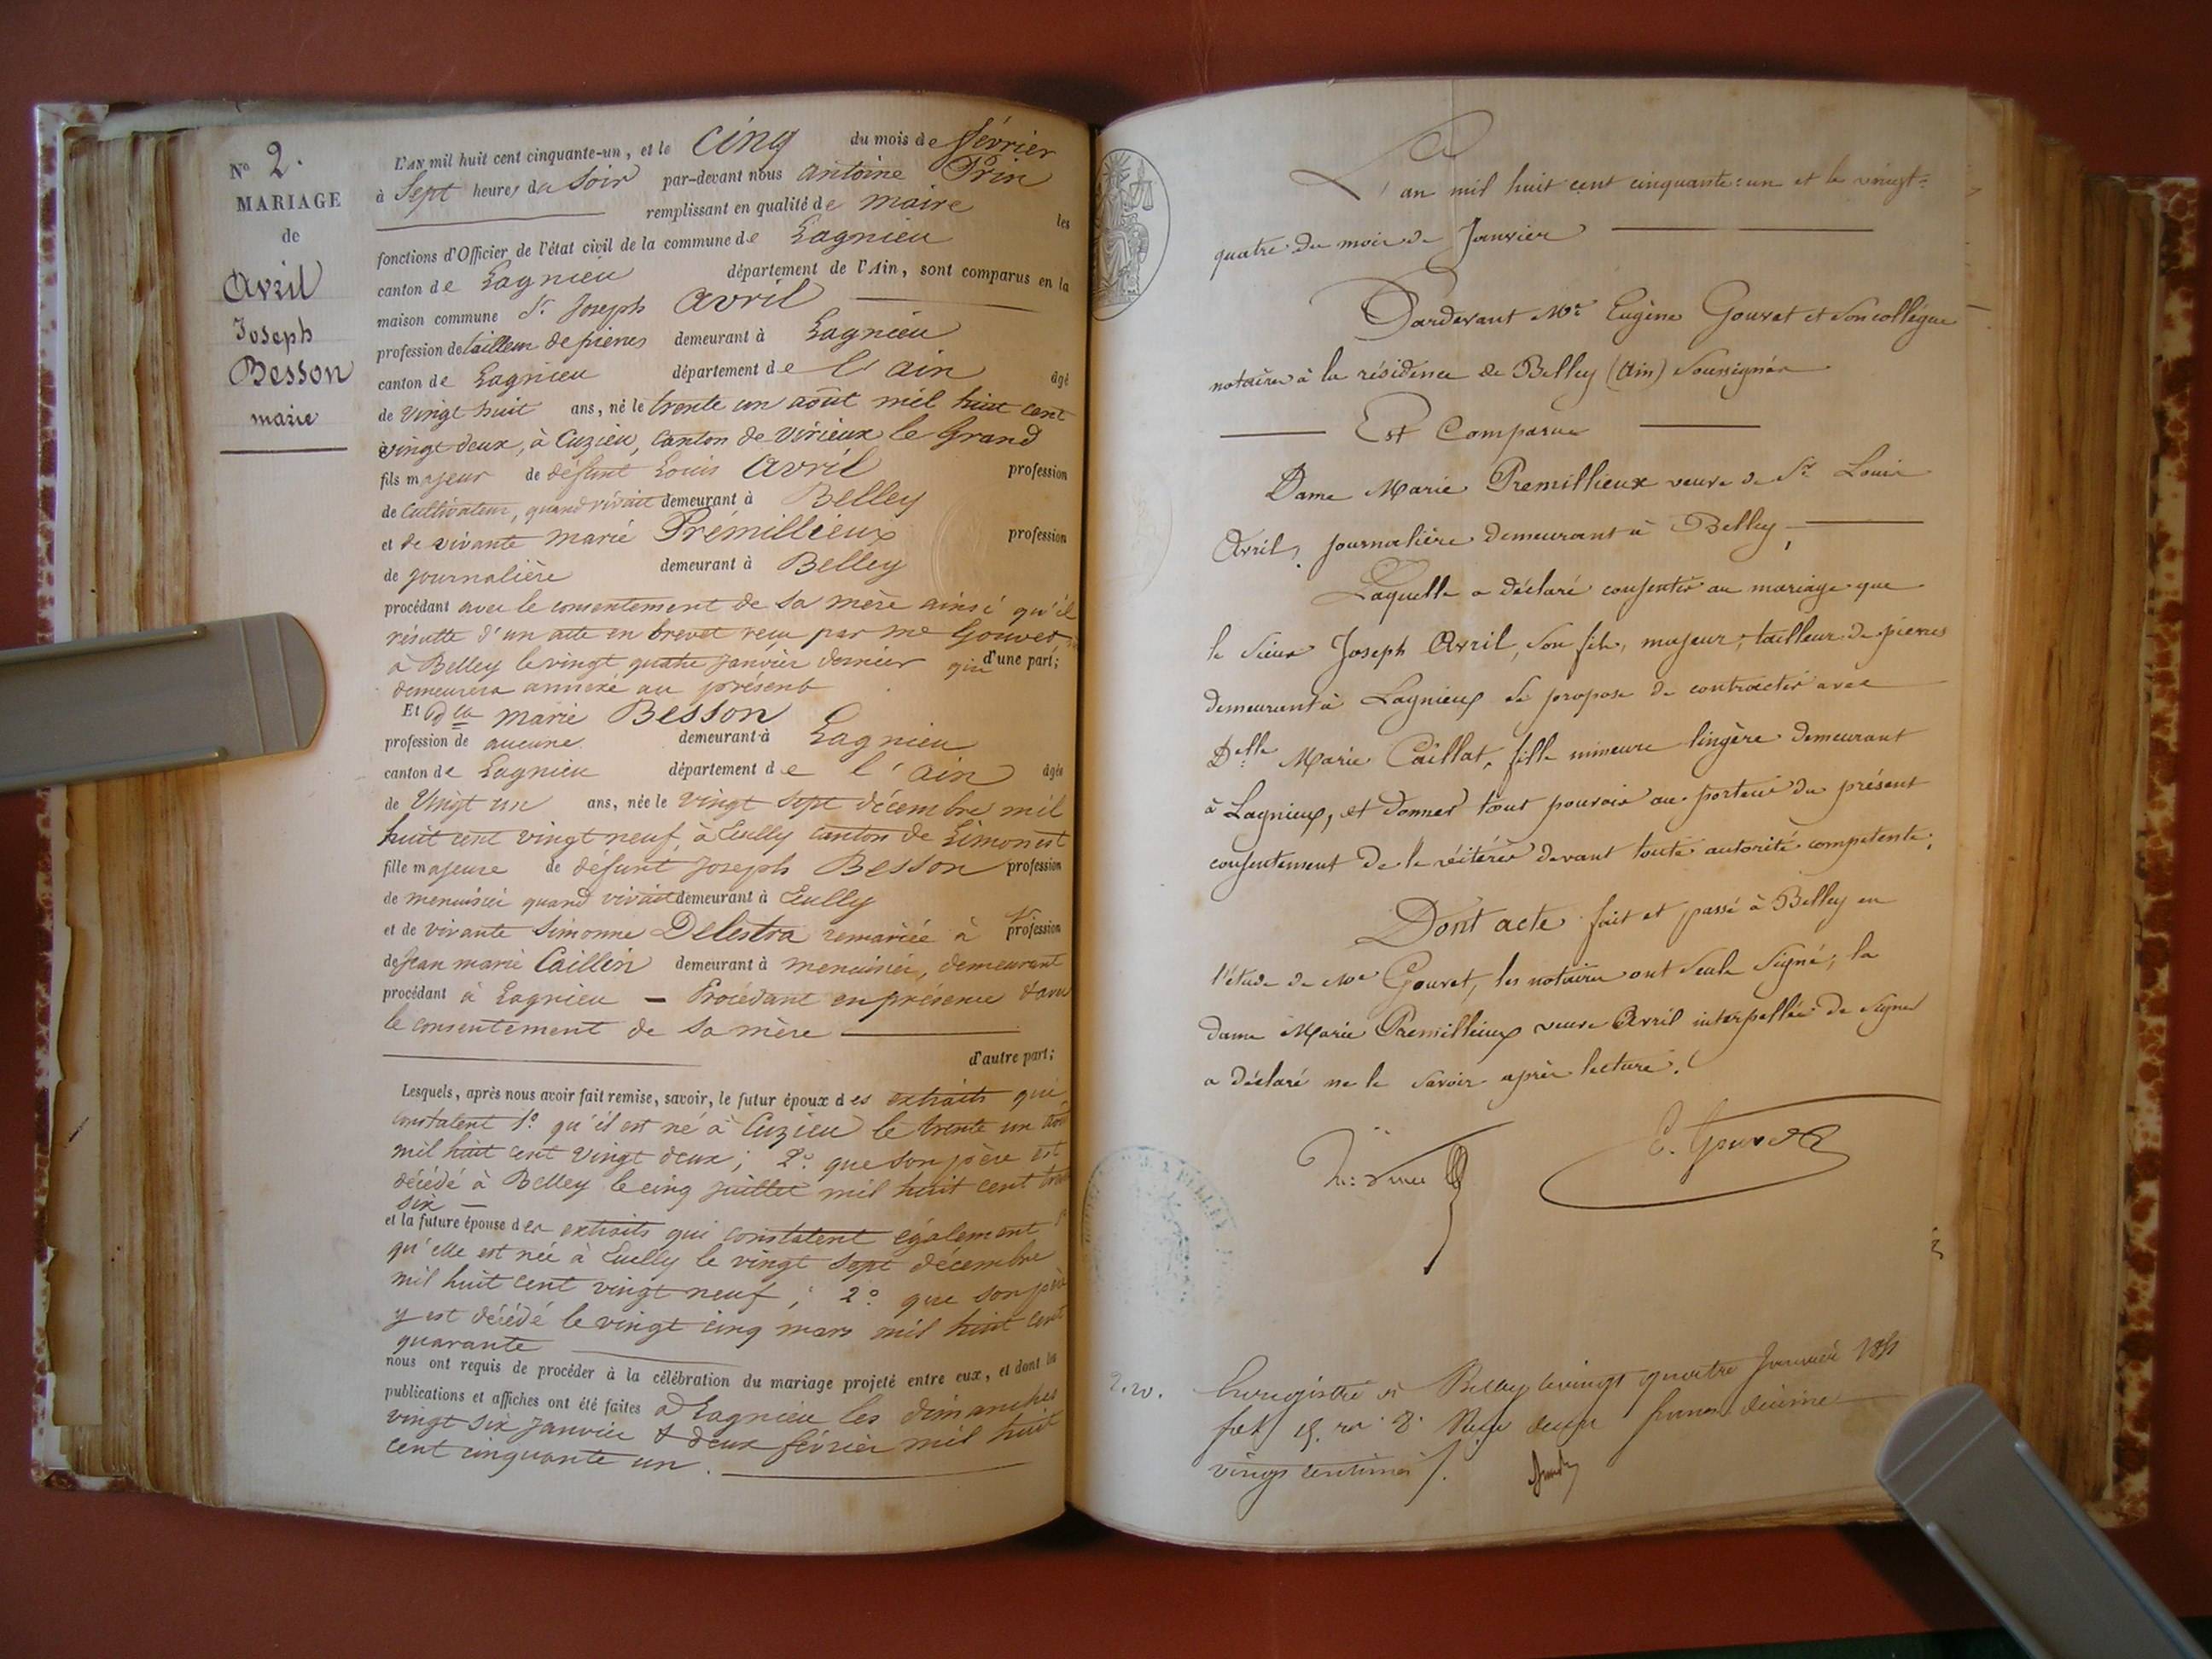 N° 2.
MARIAGE
de
Avril
Joseph
Besson
marie
L'AN mil huit cent cinquante-un, et le cinq du mois de février
à Sept heures du Soir par-devant nous antoine Prin
remplissant en qualité de maire les
fonctions d'Officier de l'état civil de la commune de Lagnieu
canton de Lagnieu département de l'Ain, sont comparus en la
maison commune Sr. Joseph Avril
profession de tailleur de pierres demeurant à Lagnieu
canton de Lagnieu département de l'ain âgé
de vingt huit ans, né le trente un août mil huit cent
vingt deux, à Cuzieu, canton de virieux le Grand
fils majeur de défunt Louis Avril profession
de Cultivateur, quand vivait demeurant à Belley
et de vivante marie Prémillieux profession
de journalière demeurant à Belley
procédant avec le consentement de sa mère ainsi qu'il
résulte d'un acte en brevet reçu par me Gouvet
à Belley le vingt quatre janvier dernier qui d'une part;
demeurera annexé au présent
Et Dlle marie Besson
profession de aucune demeurant à Lagnieu
canton de Lagnieu département de l'ain âgée
de Vingt un ans, née le vingt sept décembre mil
huit cent vingt neuf, à Ecully canton de Limonest
fille majeure de défunt Joseph Besson profession
de menuisier quand vivait demeurant à Ecully
et de vivante Simonne Delestra remariée à profession
de Jean marie Caillin demeurant à menuisier, demeurant
procédant à Lagnieu – Procédant en présence & avec
le consentement de sa mère
d'autre part;
Lesquels, après nous avoir fait remise, savoir, le futur époux des extraits qui
constatent 1° qu'il est né à Cuzieu le trente un
mil huit cent vingt deux; 2° que son père est
décédé à Belley le cinq juillet mil huit cent
six –
et la future épouse des extraits qui constatent également
qu'elle est née à Ecully le vingt sept décembre
mil huit cent vingt neuf; 2° que son père
y est décédé le vingt cinq mars mil huit cent
quarante
nous ont requis de procéder à la célébration du mariage projeté entre eux, et dont les
publications et affiches ont été faites à Lagnieu les dimanches
vingt six janvier & deux février mil huit
cent cinquante un.
L'an mil huit cent cinquante-un et le vingt-
quatre du mois de Janvier
Pardevant Me Eugène Gouvet et son collègue
notaires à la résidence de Belley (Ain) Soussignés
Est Comparue
Dame Marie Premillieux veuve de Sr Louis
Avril, journalière demeurant à Belley,
Laquelle a déclaré consentir au mariage que
le Sieur Joseph Avril, son fils, majeur, tailleur de pierres
demeurant à Lagnieux se propose de contracter avec
Delle Marie Caillat, fille mineure lingère demeurant
à Lagnieux, et donner tout pouvoir au porteur du présent
consentement de le réitérer devant toute autorité compétente;
Dont acte fait et passé à Belley en
l'étude de Me Gouvet, les notaires ont seuls signé; la
dame Marie Premillieux veuve Avril interpellée de signer
a déclaré ne le savoir après lecture.
E. Gouvet
2.20. Enregistré à Belley le vingt quatre Janvier 1851
vingt centimes